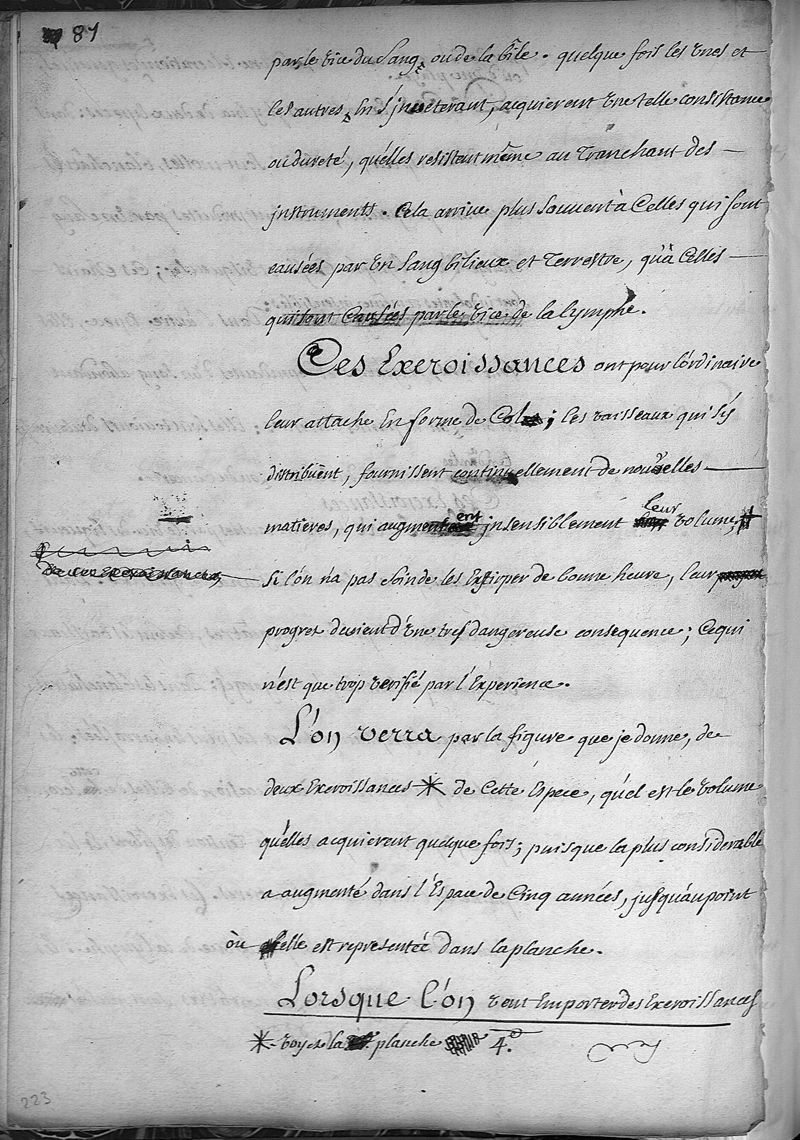 81
par le vice du Sang, ou de la bile. quelque fois les unes et
les autres, En s'jnveterant, acquierent une telle consistance
ou dureté, qu'elles resistent même au Tranchant des —
jnstruments. Cela arrive plus souvent à Celles qui sont
causées par un Sang bilieux et Terrestre, qu'à Celles —
qui sont Causées par le vice de la lymphe.
Ces Excroissances ont pour l'ordinaire
leur attache En forme de Col; les vaisseaux qui s'y
distribuënt, fournissent continuellement de nouvelles —
matieres, qui augmentent jnsensiblement leur volume,
de ces Excroissances,
Si l'on n'a pas soin de les Extirper de bonne heure, leur
progret devient d'une tres dangereuse consequence; Ce qui
n'est que trop verifié par l'Experience.
L'on verra par la figure que je donne, de
deux Excroissances * de Cette Espece, qu'el est le volume
qu'elles acquierent quelque fois; puisque la plus considerable
a augmenté dans l'Espace de Cinq années, jusqu'au point
où elle est representée dans la planche.
Lorsque l'on veut Emporter des Excroissances
* voyez la planche 4.e
223